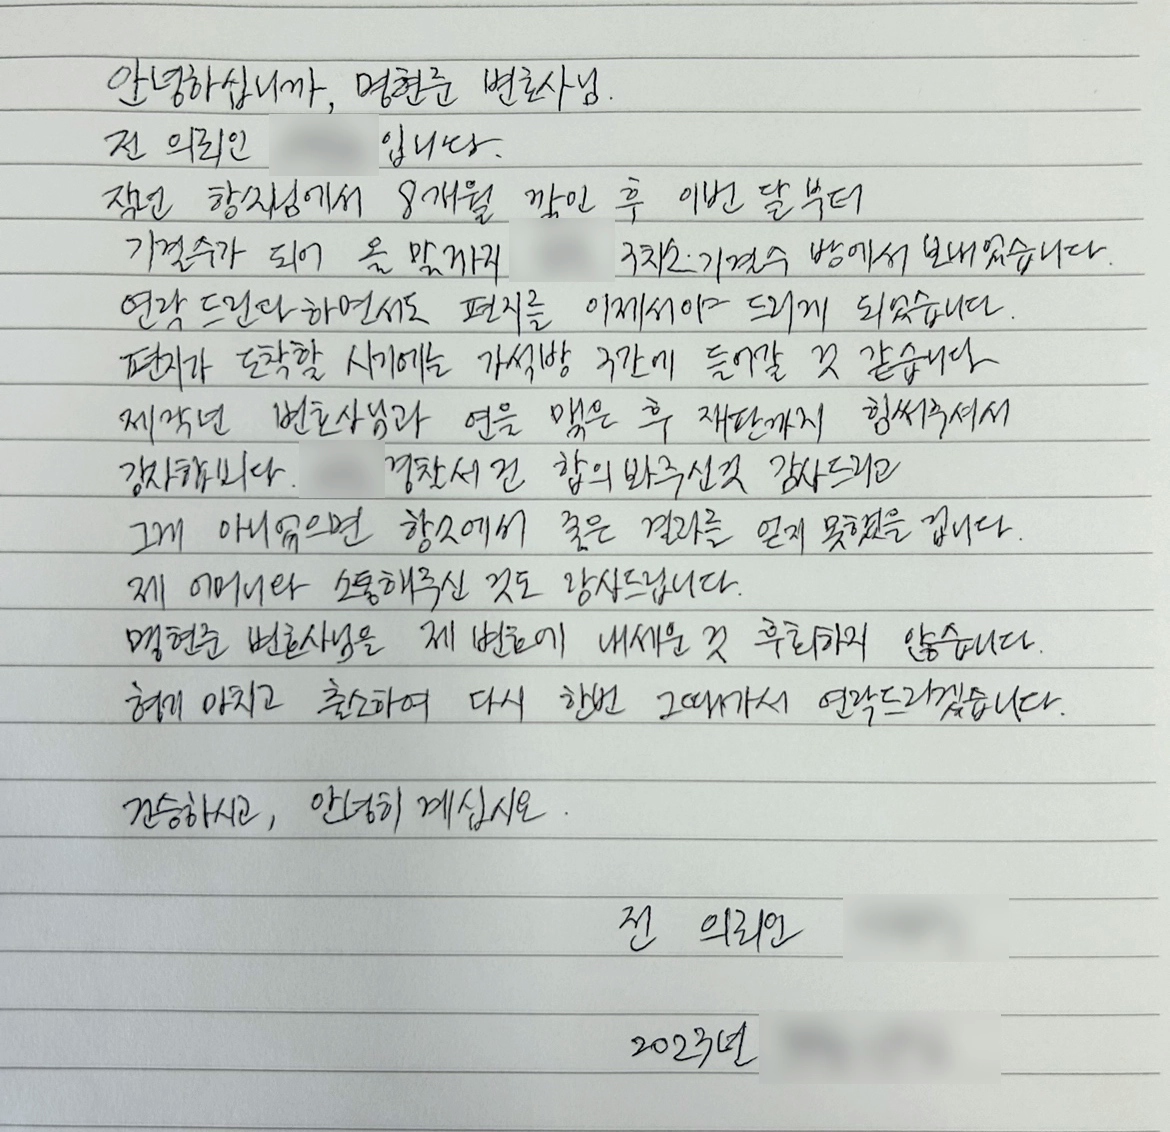 안녕하십니까, 명현준 변호사님.
전 의뢰인 입니다.
작년 항소심에서 8개월 깎인 후 이번 달부터
기결수가 되어 올 말까지 구치소 기결수 방에서 보내었습니다.
연락드린다 하면서도 편지를 이제서야 드리게 되었습니다.
편지가 도착할 시기에는 가석방 구간에 들어갈 것 같습니다
제작년 변호사님과 연을 맺은 후 재판까지 힘써주셔서
감사합니다. 경찰서 건 합의 봐주신것 감사드리고
그게 아니었으면 항소에서 좋은 결과를 얻지 못했을 겁니다.
제 어머니와 소통해주신 것도 감사드립니다.
명현준 변호사님을 제 변호에 내세운 것 후회하지 않습니다.
형기 마치고 출소하여 다시 한번 그때가서 연락드리겠습니다.
건승하시고, 안녕히 계십시오.
전 의뢰인
2023년